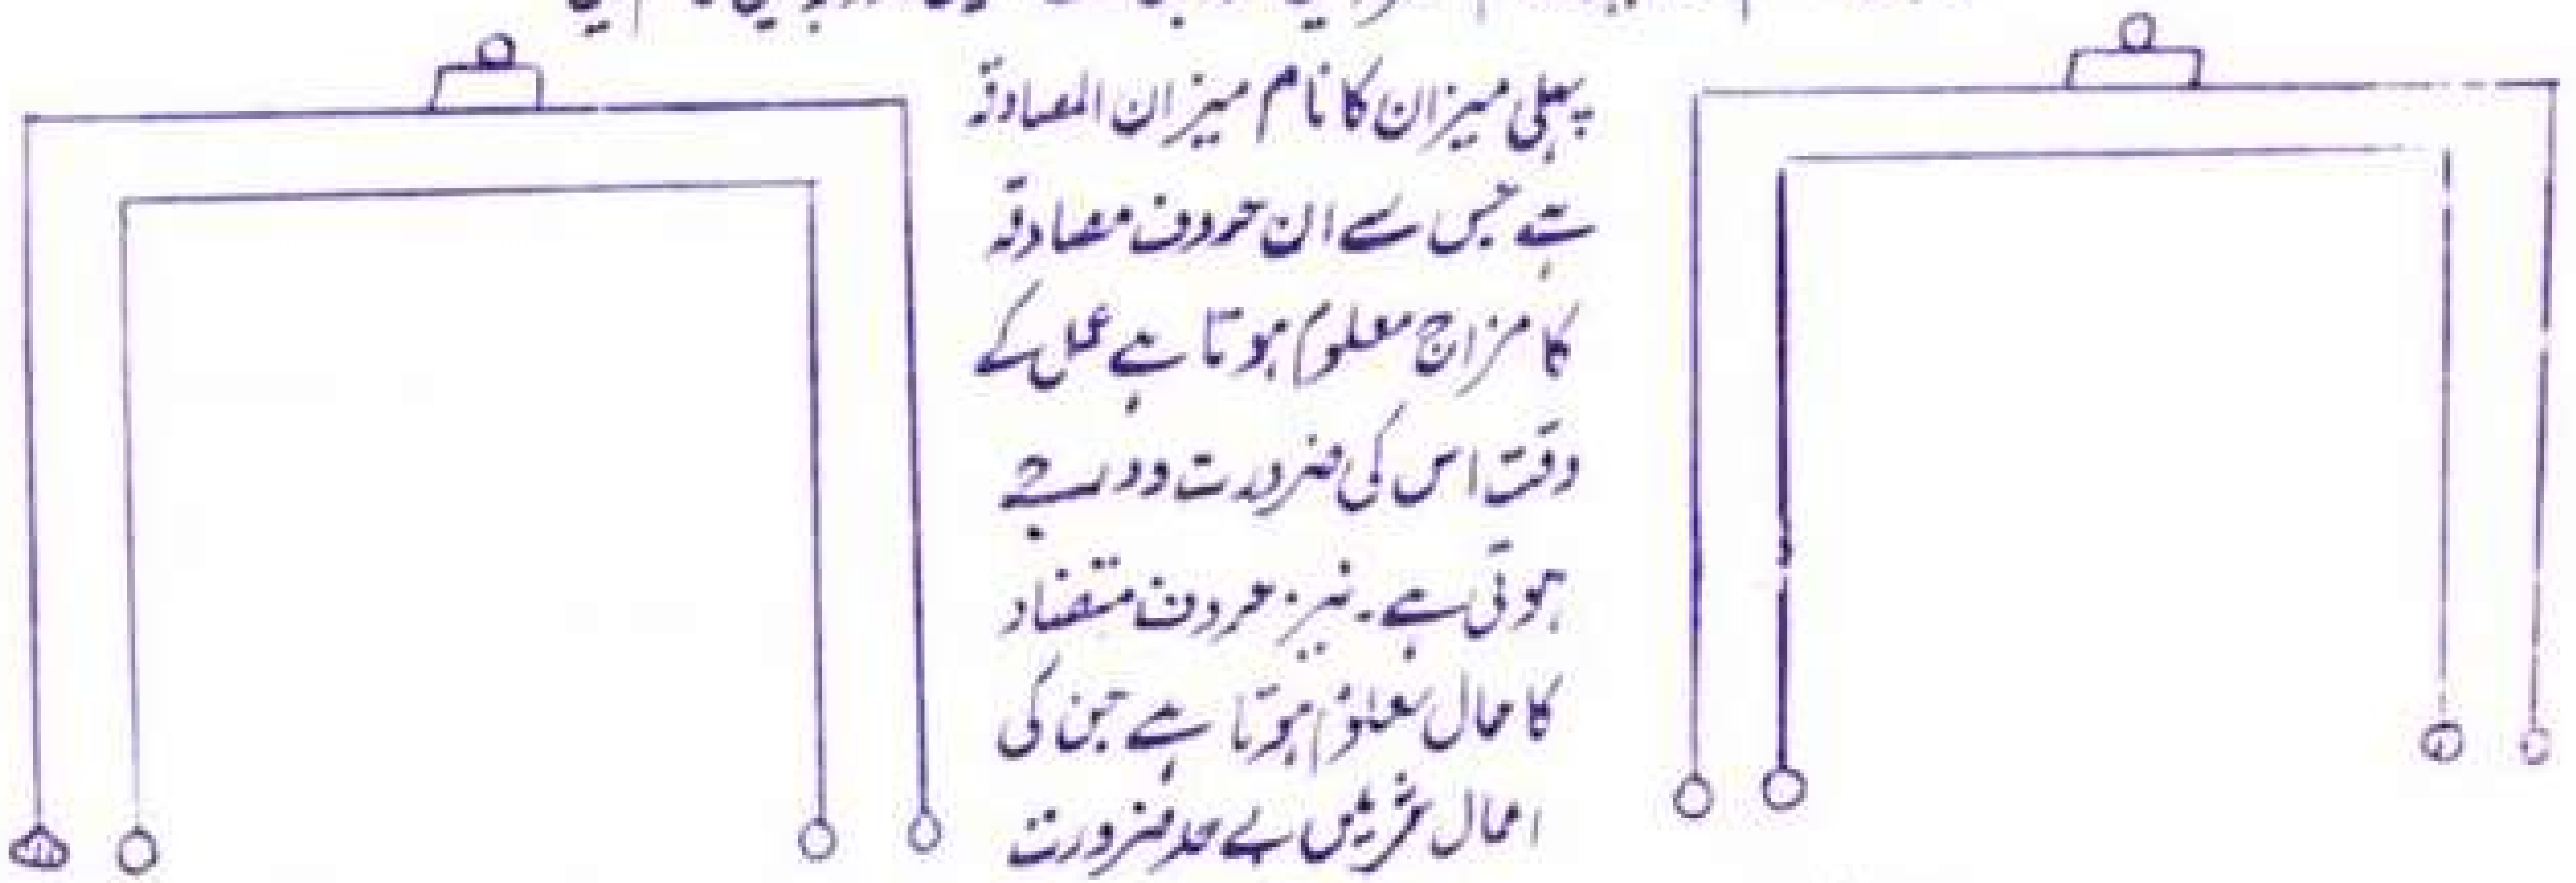 پہلی میزان کا نام میزان المصادقہ
ہے جس سے ان حروف مصادقہ
کا مزاج معلوم ہوتا ہے عمل کے
وقت اس کی ضرورت دو درجے
ہوتی ہے۔ نیز حروف متضاد
کا حال معلوم ہوتا ہے جن کی
اعمال شریں بے حد ضرورت